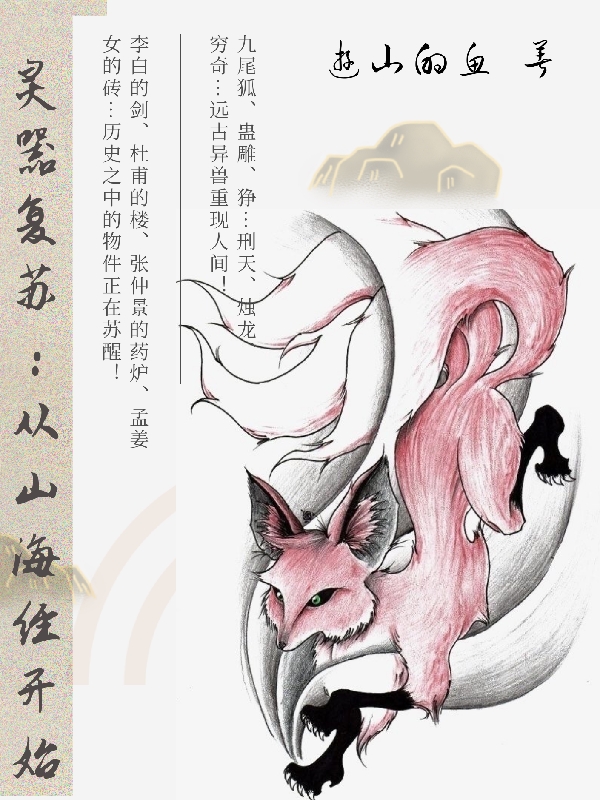 游山的鱼 著
九尾狐、蛊雕、狰…刑天、烛龙
穷奇…远古异兽重现人间！
李白的剑、杜甫的楼、张仲景的药炉、孟姜
女的砖…历史之中的物件正在苏醒！
灵器复苏：从山海经开始